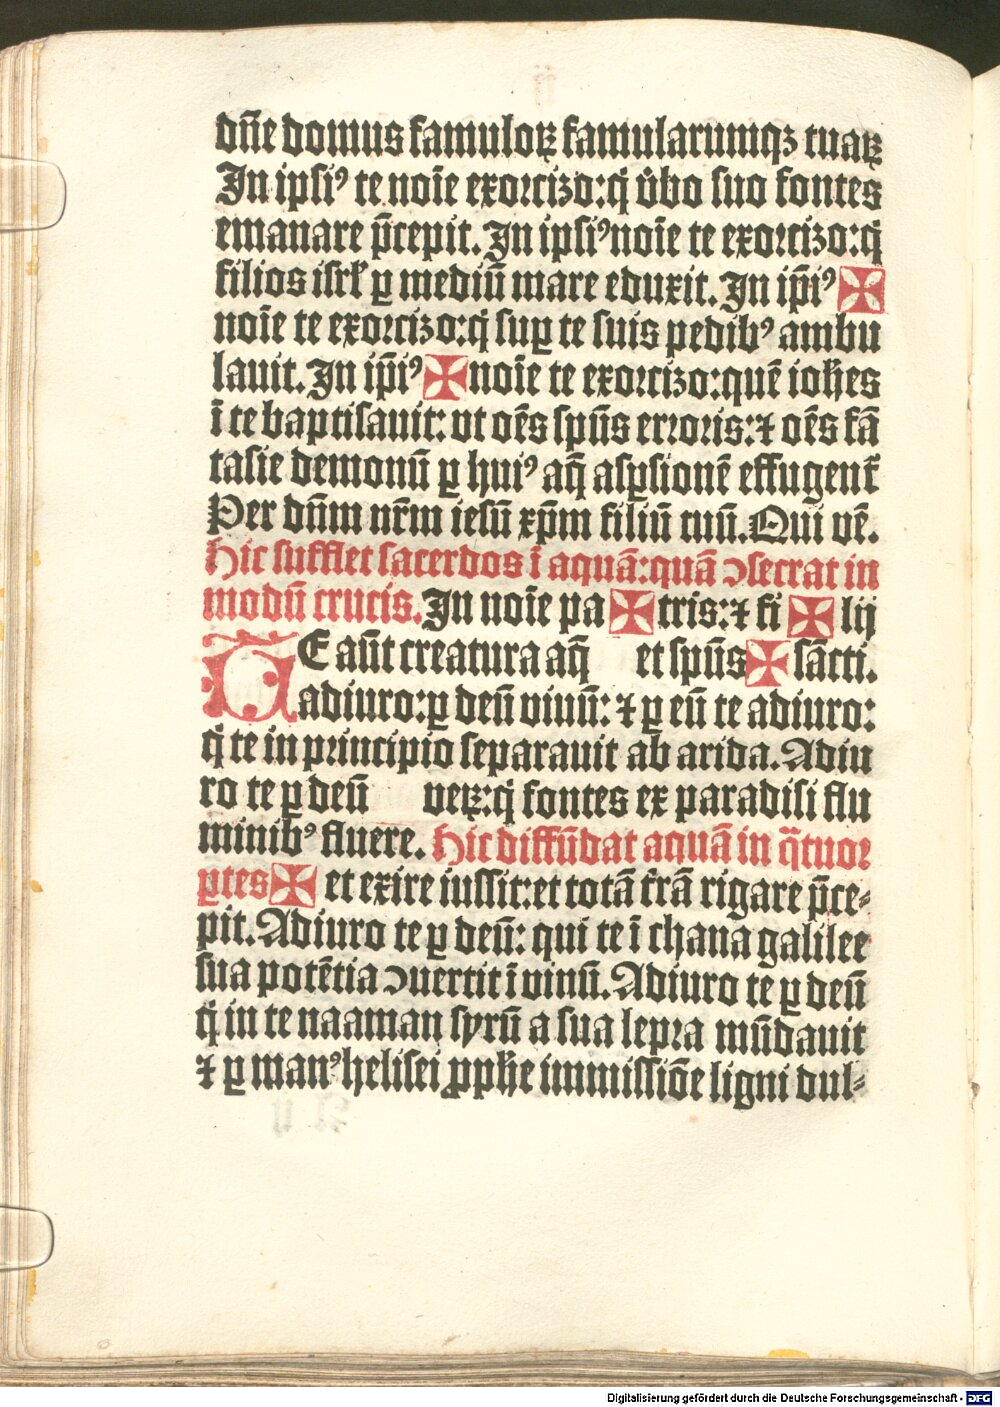 dñe domus famuloꝝ famularumqꝫ tuaꝝ
In ipsiꝰ te noīe exorcizo:q̇ v̇bo suo fontes
emanare p̄cepit. In ipsiꝰ noīe te exorcizo:q̇
filios isrł ꝑ mediū mare eduxit. In ip̄iꝰ ✠
noīe te exorcizo:q̇ suꝑ te suis pedibꝰ ambu
lauit. In ip̄iꝰ ✠ noīe te exorcizo:quē ioħes
ī te baptisauit: vt oēs spūs erroris:⁊ oēs fā
tasie demonū ꝑ huiꝰ aq̄ asꝑsionē effugent̄
Per dn̄m nr̄m iesū xp̄m filiū tuū. Qui vē.
Hic sufflet sacerdos ī aquā:quā ↄsecrat in
modū crucis. In noīe pa ✠ tris:⁊ fi ✠ lij
TE aūt creatura aq̄ et spūs ✠ sācti.
adiuro:ꝑ deū viuū: ⁊ ꝑ eū te adiuro:
q̇ te in principio separauit ab arida. Adiu
ro te ꝑ deū veꝝ:q̇ fontes ex paradisi flu
minibꝰ fluere. Hic diffūdat aquā in q̄tuor
ꝑtes ✠ et exire iussit:et totā t̄rā rigare p̄ce⸗
pit. Adiuro te ꝑ deū: qui te ī chana galilee
sua potētia ↄuertit ī vinū. Adiuro te ꝑ deū
q̇ in te naaman syrū a sua lepra mūdauit
⁊ ꝑ manꝰ helisei ꝓpħe immissiōe ligni dul⸗
Digitalisierung gefördert durch die Deutsche Forschungsgemeinschaft - DFG